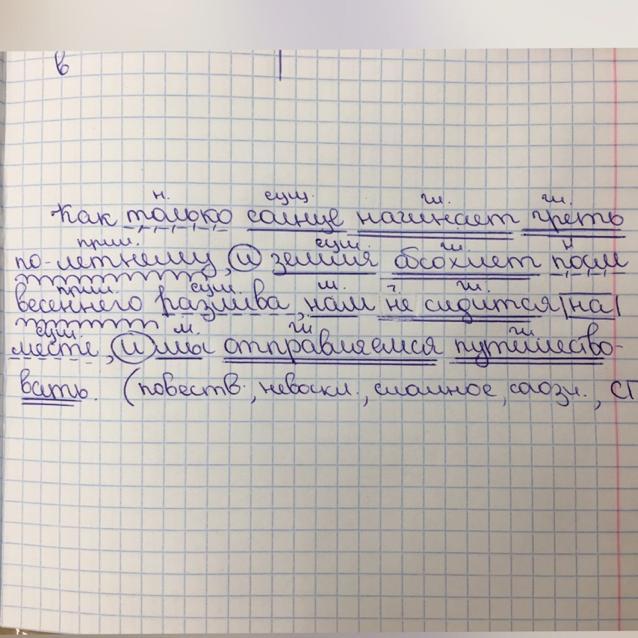 в
н. сущ. гл. гл.
Как только солнце начинает греть
прил. сущ. гл. н
по-летнему, и земля обсохнет после
прил. сущ. м. ч. гл.
весеннего разлива, нам не сидится на
сущ. м. гл. гл.
месте, и мы отправляемся путешество-
вать. (повеств., невоскл., сложное, союзн., СП